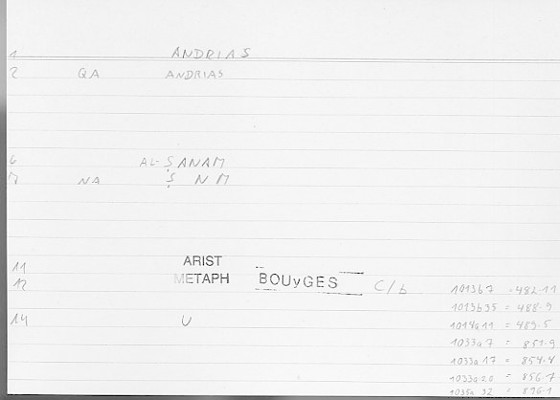 1 ANDRIAS
2 QA ANDRIAS
6 AL-ṢANAM
7 NA Ṣ N M
11 ARIST
12 METAPH BOUyGES C/b
1013b7 = 482.11
1013b35 = 488.9
14 U 1014a11 = 489.5
1033a7 = 851.9
1033a17 = 854.4
1033a20 = 856.7